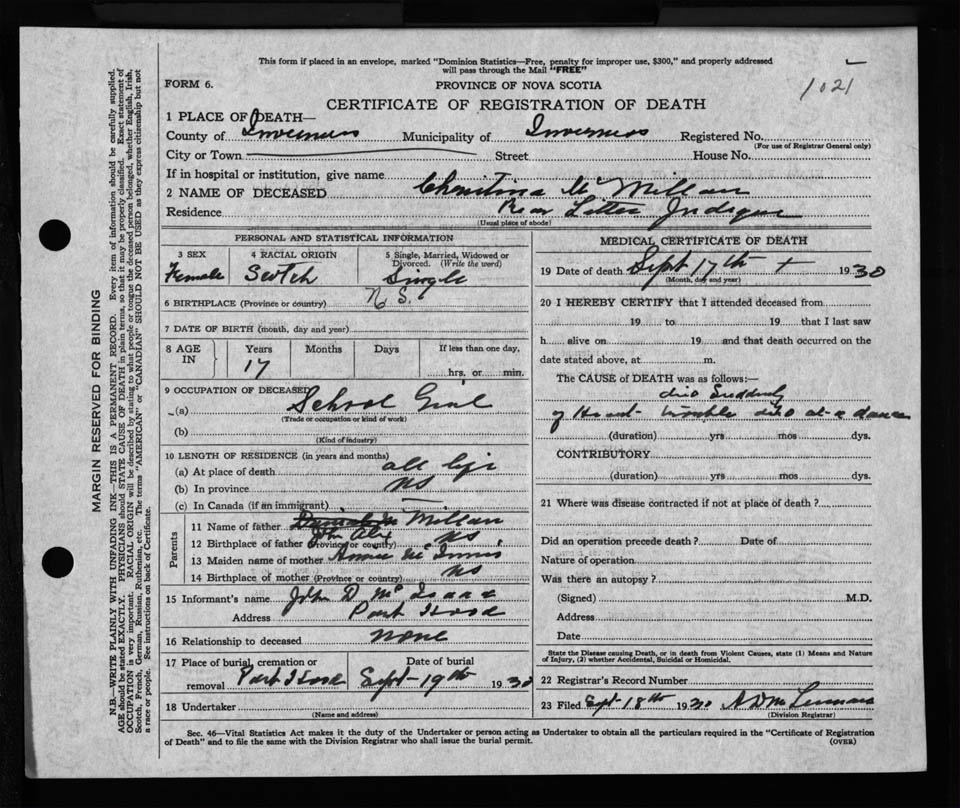 This form if placed in an envelope, marked "Dominion Statistics—Free, penalty for improper use, $300," and properly addressed
will pass through the Mail "FREE"
FORM 6.
PROVINCE OF NOVA SCOTIA
1021
CERTIFICATE OF REGISTRATION OF DEATH
1 PLACE OF DEATH—
County of Inverness Municipality of Inverness Registered No.
(For use of Registrar General only)
City or Town Street House No.
If in hospital or institution, give name
2 NAME OF DECEASED Christina McMillan
Residence Rear Little Judique
(Usual place of abode)
PERSONAL AND STATISTICAL INFORMATION
3 SEX 4 RACIAL ORIGIN 5 Single, Married, Widowed or
Divorced. (Write the word)
Female Scotch Single
6 BIRTHPLACE (Province or country) N S.
7 DATE OF BIRTH (month, day and year)
8 AGE IN Years Months Days If less than one day,
17 hrs, or min.
9 OCCUPATION OF DECEASED
(a) School Girl
(Trade or occupation or kind of work)
(b)
(Kind of industry)
10 LENGTH OF RESIDENCE (in years and months)
(a) At place of death all life
(b) In province NS
(c) In Canada (if an immigrant) —
Parents
11 Name of father McMillan
John Alex
12 Birthplace of father (Province or country) NS
13 Maiden name of mother Annie McInnis
14 Birthplace of mother (Province or country) NS
15 Informant's name John D. McIsaac
Address Port Hood
16 Relationship to deceased none
17 Place of burial, cremation or Date of burial
removal Port Hood Sept 19th 1930
18 Undertaker
(Name and address)
MEDICAL CERTIFICATE OF DEATH
19 Date of death Sept 17th 1930
(Month, day and year)
20 I HEREBY CERTIFY that I attended deceased from
19 to 19 that I last saw
h alive on 19 and that death occurred on the
date stated above, at m.
The CAUSE of DEATH was as follows:—
died Suddenly
of Heart trouble died at a dance
(duration) yrs mos dys.
CONTRIBUTORY
(duration) yrs mos dys.
21 Where was disease contracted if not at place of death?
Did an operation precede death? Date of
Nature of operation
Was there an autopsy?
(Signed) M.D.
Address
Date
State the Disease causing Death, or in death from Violent Causes, state (1) Means and Nature
of Injury, (2) whether Accidental, Suicidal or Homicidal.
22 Registrar's Record Number
23 Filed Sept 18th 1930 A D McLennan
(Division Registrar)
Sec. 46—Vital Statistics Act makes it the duty of the Undertaker or person acting as Undertaker to obtain all the particulars required in the "Certificate of Registration
of Death" and to file the same with the Division Registrar who shall issue the burial permit.
(OVER)
MARGIN RESERVED FOR BINDING
N.B.—WRITE PLAINLY WITH UNFADING INK—THIS IS A PERMANENT RECORD. Every item of information should be carefully supplied.
AGE should be stated EXACTLY. PHYSICIANS should STATE CAUSE OF DEATH in plain terms, so that it may be properly classified. Exact statement of
OCCUPATION is very important. RACIAL ORIGIN will be described by stating to what people or tongue the deceased person belonged, whether English, Irish,
Scotch, French, German, Russian, Ruthenian, etc. The terms "AMERICAN" or "CANADIAN" SHOULD NOT BE USED as they express citizenship but not
a race or people. See instructions on back of Certificate.